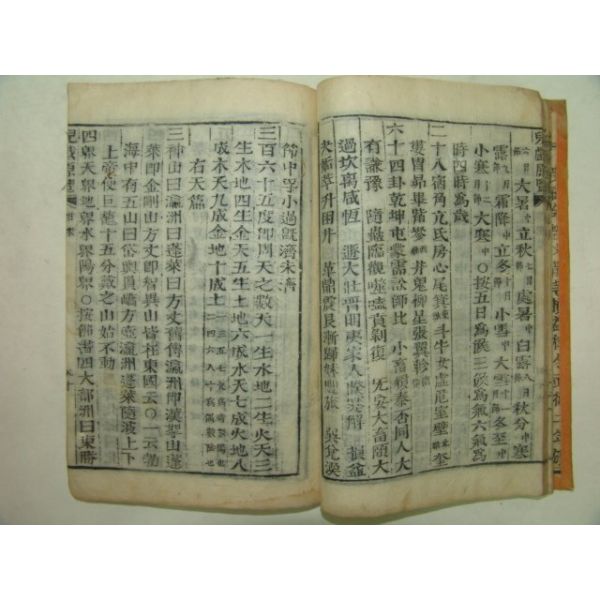 六月節 大暑中 立秋七月節 處暑中 白露八月節 秋分中 寒
露九月節 霜降中 立冬十月節 小雪中 大雪十一月節 冬至中
小寒十二月節 大寒中 ○按五日爲候三候爲氣六氣爲
時四時爲歲
二十八宿角亢氐房心尾箕東 斗牛女虛危室壁北 奎
婁胃昴畢觜參西 井鬼柳星張翼軫南
六十四卦乾坤屯蒙需訟師比 小畜履泰否同人大
有謙豫 隨蠱臨觀噬嗑賁剝復 无妄大畜頤大
過坎離咸恒 遯大壯晉明夷家人睽蹇解 損益
夬姤萃升困井 革鼎震艮漸歸妹豐旅 巽兌渙
節中孚小過旣濟未濟
三百六十五度卽周天之數 天一生水地二生火天三
生木地四生金天五生土地六成水天七成火地八
成木天九成金地十成土 一三五七九 二四六八十
右天篇
三神山曰瀛洲曰蓬萊曰方丈舊傳瀛洲卽漢拏山蓬
萊卽金剛山方丈卽智異山皆在東國云○一云勃
海中有五山曰岱輿員嶠方壺瀛洲蓬萊隨波上下
上帝使巨鼇十五分戴之山始不動
四界天界地界水界陽界○按佛書四大部洲曰東勝
兒戲原覽